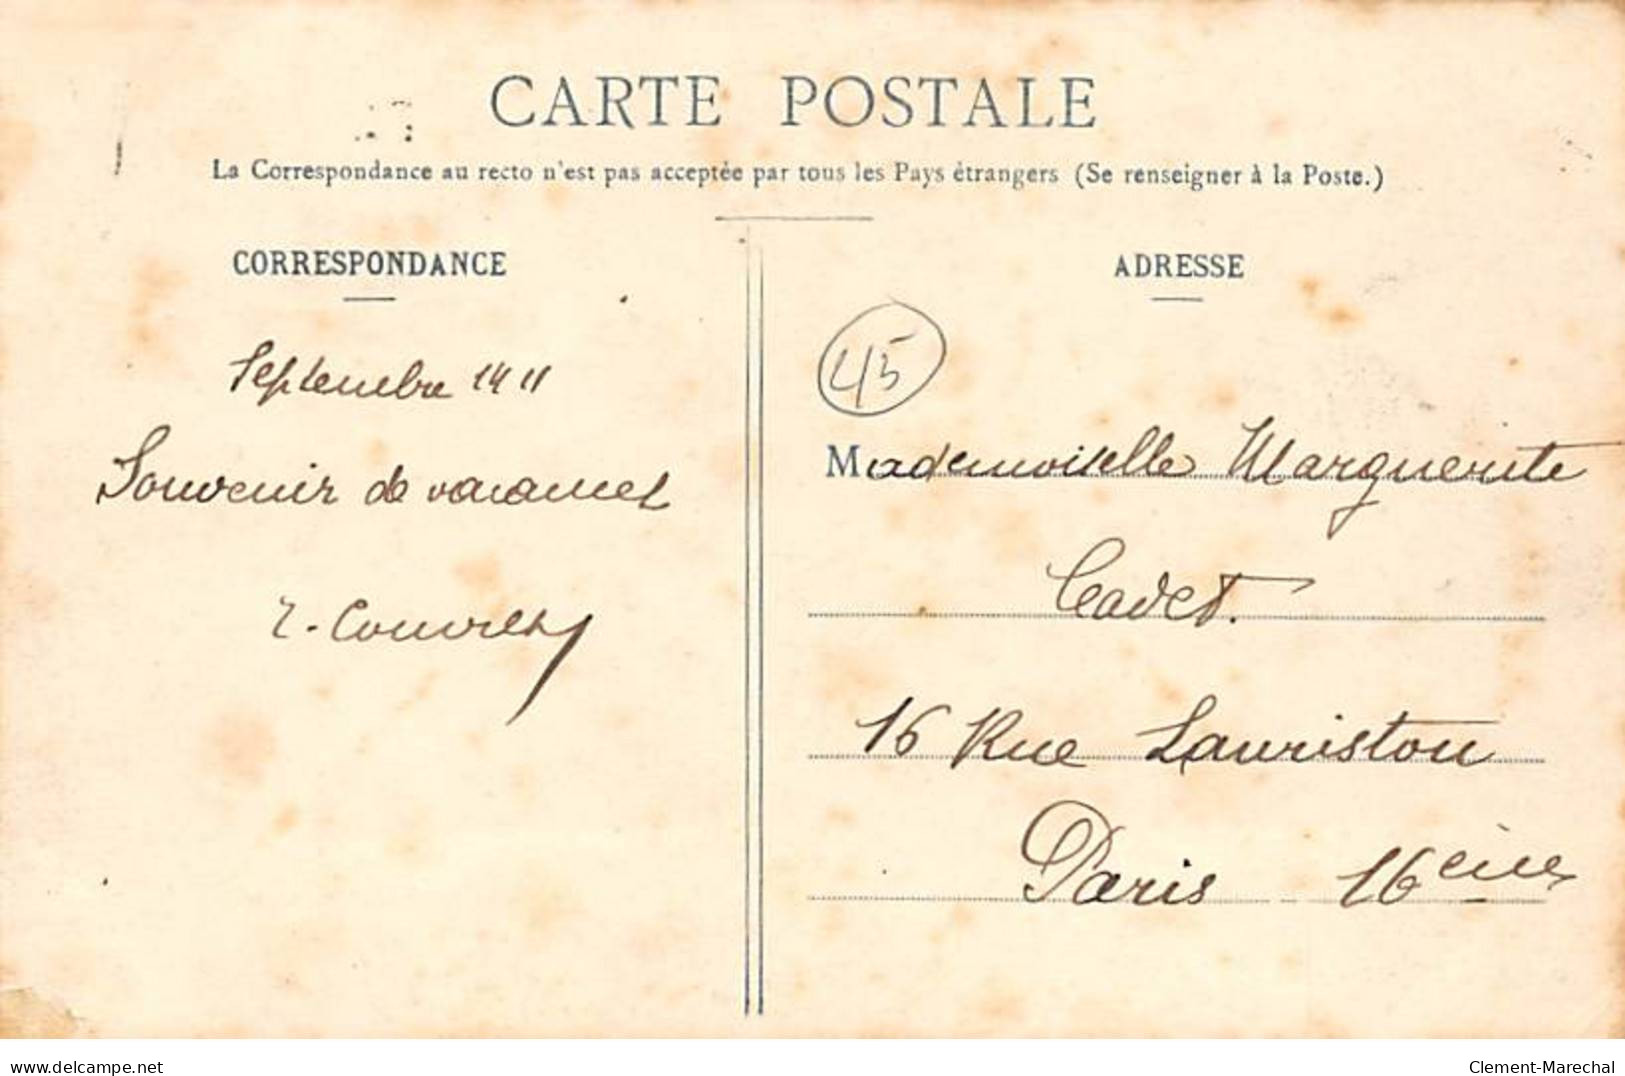 CARTE POSTALE
La Correspondance au recto n'est pas acceptée par tous les Pays étrangers (Se renseigner à la Poste.)
CORRESPONDANCE
Septembre 1911
Souvenir de vacances
ADRESSE
45
Mademoiselle Marguerite
Cadet.
16 Rue Lauriston
Paris 16ème
delcampe.net
Clement-Marechal